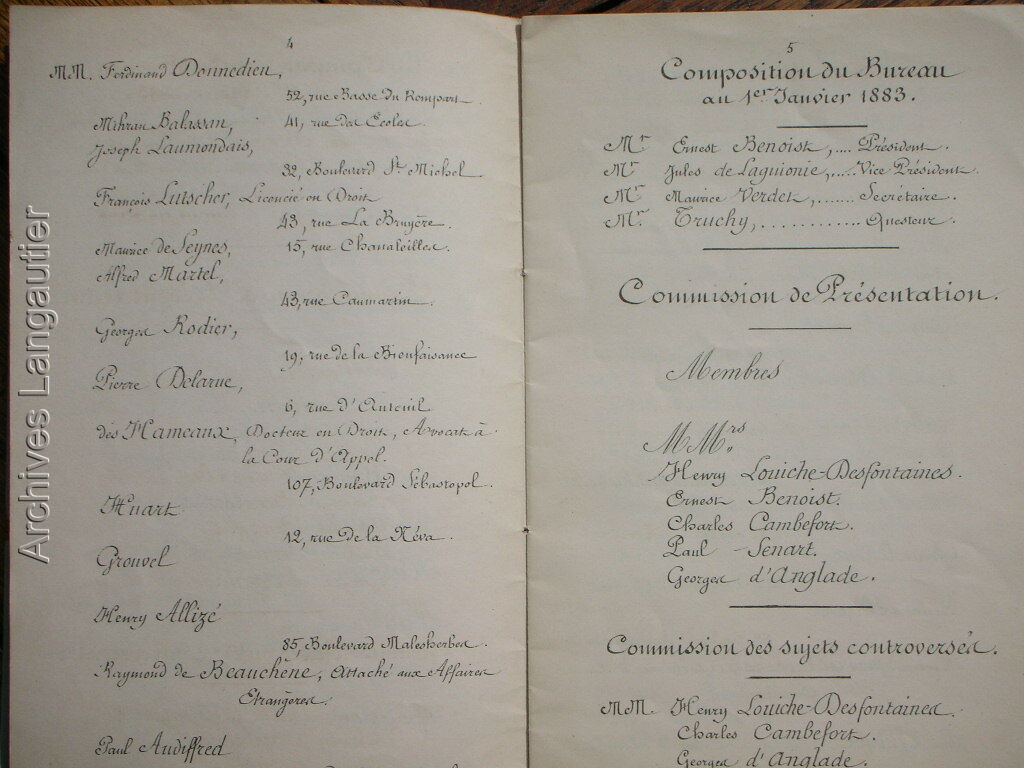 4
MM. Ferdinand Donnedieu,
52, rue Basse du Rempart.
Mihran Balassan, 41, rue des Écoles.
Joseph Laumondais,
32, Boulevard St Michel.
François Lutscher, Licencié en Droit
43, rue La Bruyère.
Maurice de Seynes, 15, rue Chanaleilles.
Alfred Martel,
43, rue Caumartin.
Georges Rodier,
19, rue de la Bienfaisance
Pierre Delarue,
6, rue d'Auteuil
des Hameaux, Docteur en Droit, Avocat à
la Cour d'Appel.
107, Boulevard Sébastopol.
Huart
12, rue de la Néva.
Grouvel
Henry Allizé
85, Boulevard Malesherbes.
Raymond de Beauchêne, Attaché aux Affaires
Etrangères.
Paul Audiffred
5
Composition du Bureau
au 1er Janvier 1883.
Mr Ernest Benoist, .... Président.
Mr Jules de Laguionie, .... Vice Président.
Mr Maurice Verdet, ....... Secrétaire.
Mr Truchy, ............ Questeur.
Commission de Présentation.
Membres
MMrs
Henry Louiche-Desfontaines.
Ernest Benoist.
Charles Cambefort.
Paul Senart.
Georges d'Anglade.
Commission des sujets controversés.
MM. Henry Louiche-Desfontaines.
Charles Cambefort.
Georges d'Anglade.
Archives Langautier